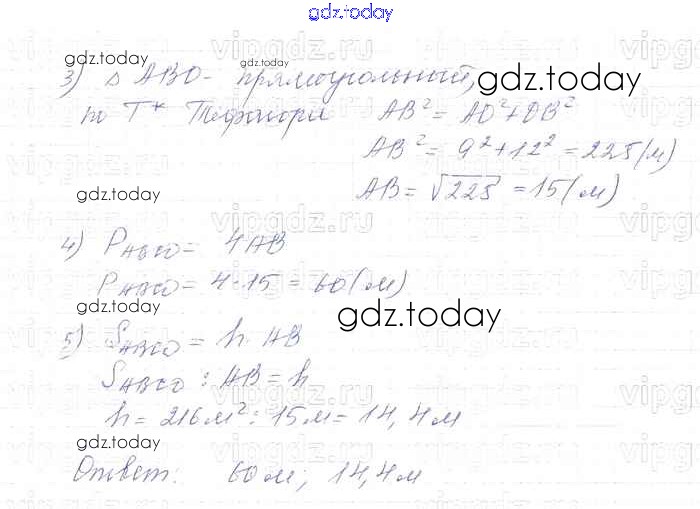 gdz.today
3) Δ ABO - прямоугольный,
по Т* Пифагора AB² = AO² + OB²
AB² = 9² + 12² = 225 (м)
AB = √225 = 15 (м)
gdz.today
4) P ABCD = 4AB
P ABCD = 4 · 15 = 60 (м)
gdz.today
5) S ABCD = h · AB
S ABCD : AB = h
h = 216 м² : 15 м = 14,4 м
gdz.today
Ответ: 60 м; 14,4 м